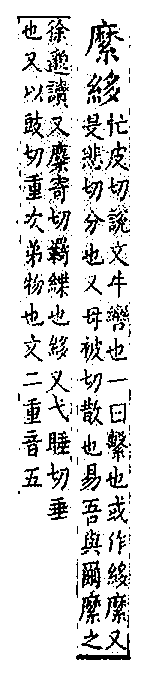 縻𥿫
忙皮切說文牛轡也一曰繫也或作𥿫縻又
旻悲切分也又母被切散也易吾與爾縻之
徐邈讀又糜寄切羈緤也𥿫又弋睡切垂
也又以豉切重次弟物也文二重音五